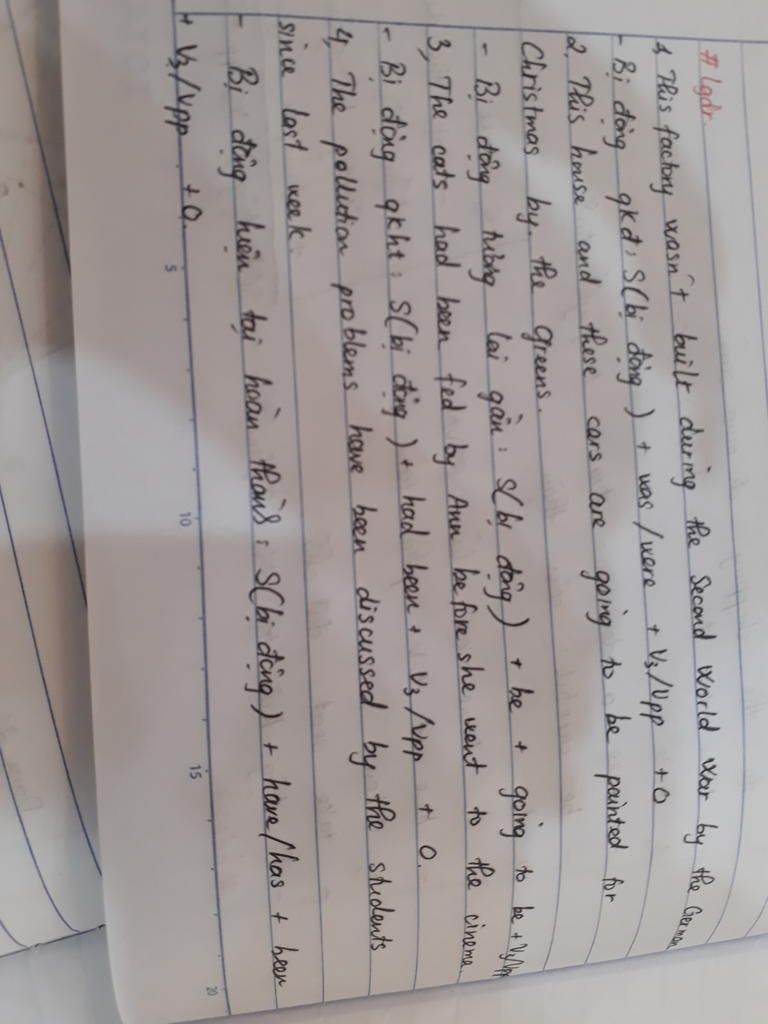 # lgdr.
1, This factory wasn't built during the Second World War by the German
- Bị động qkđ: S(bị động) + was/were + V3/Vpp + O
2, This house and these cars are going to be painted for
Christmas by the Greens.
- Bị động tương lai gần: S(bị động) + be + going to be + V3/Vpp
3, The cats had been fed by Ann before she went to the cinema.
- Bị động qkht: S(bị động) + had been + V3/Vpp + O.
4, The pollution problems have been discussed by the students
since last week.
- Bị động hiện tại hoàn thành: S(bị động) + have/has + been
+ V3/Vpp + O.
5 10 15 20